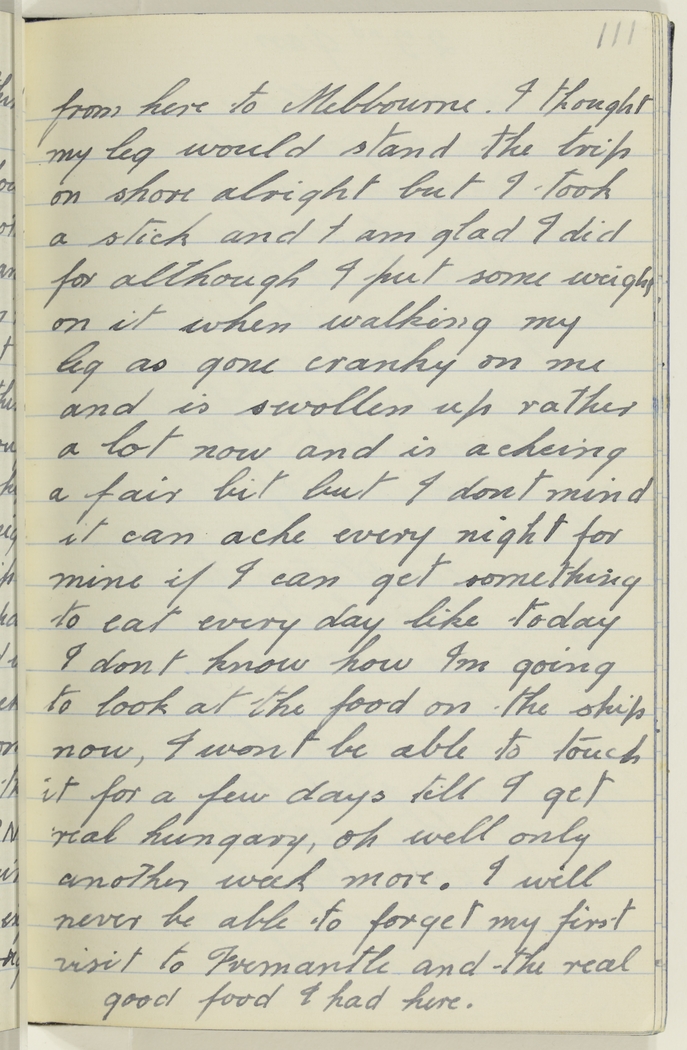 111
from here to Melbourne. I thought
my leg would stand the trip
on shore alright but I took
a stick and I am glad I did
for although I put some weight
on it when walking my
leg as gone cranky on me
and is swollen up rather
a lot now and is acheing
a fair bit but I dont mind
it can ache every night for
mine if I can get something
to eat every day like today
I dont know how Im going
to look at the food on the ship
now, I wont be able to touch
it for a few days till I get
real hungary, oh well only
another week more. I well
never be able to forget my first
visit to Fremantle and the real
good food I had here.